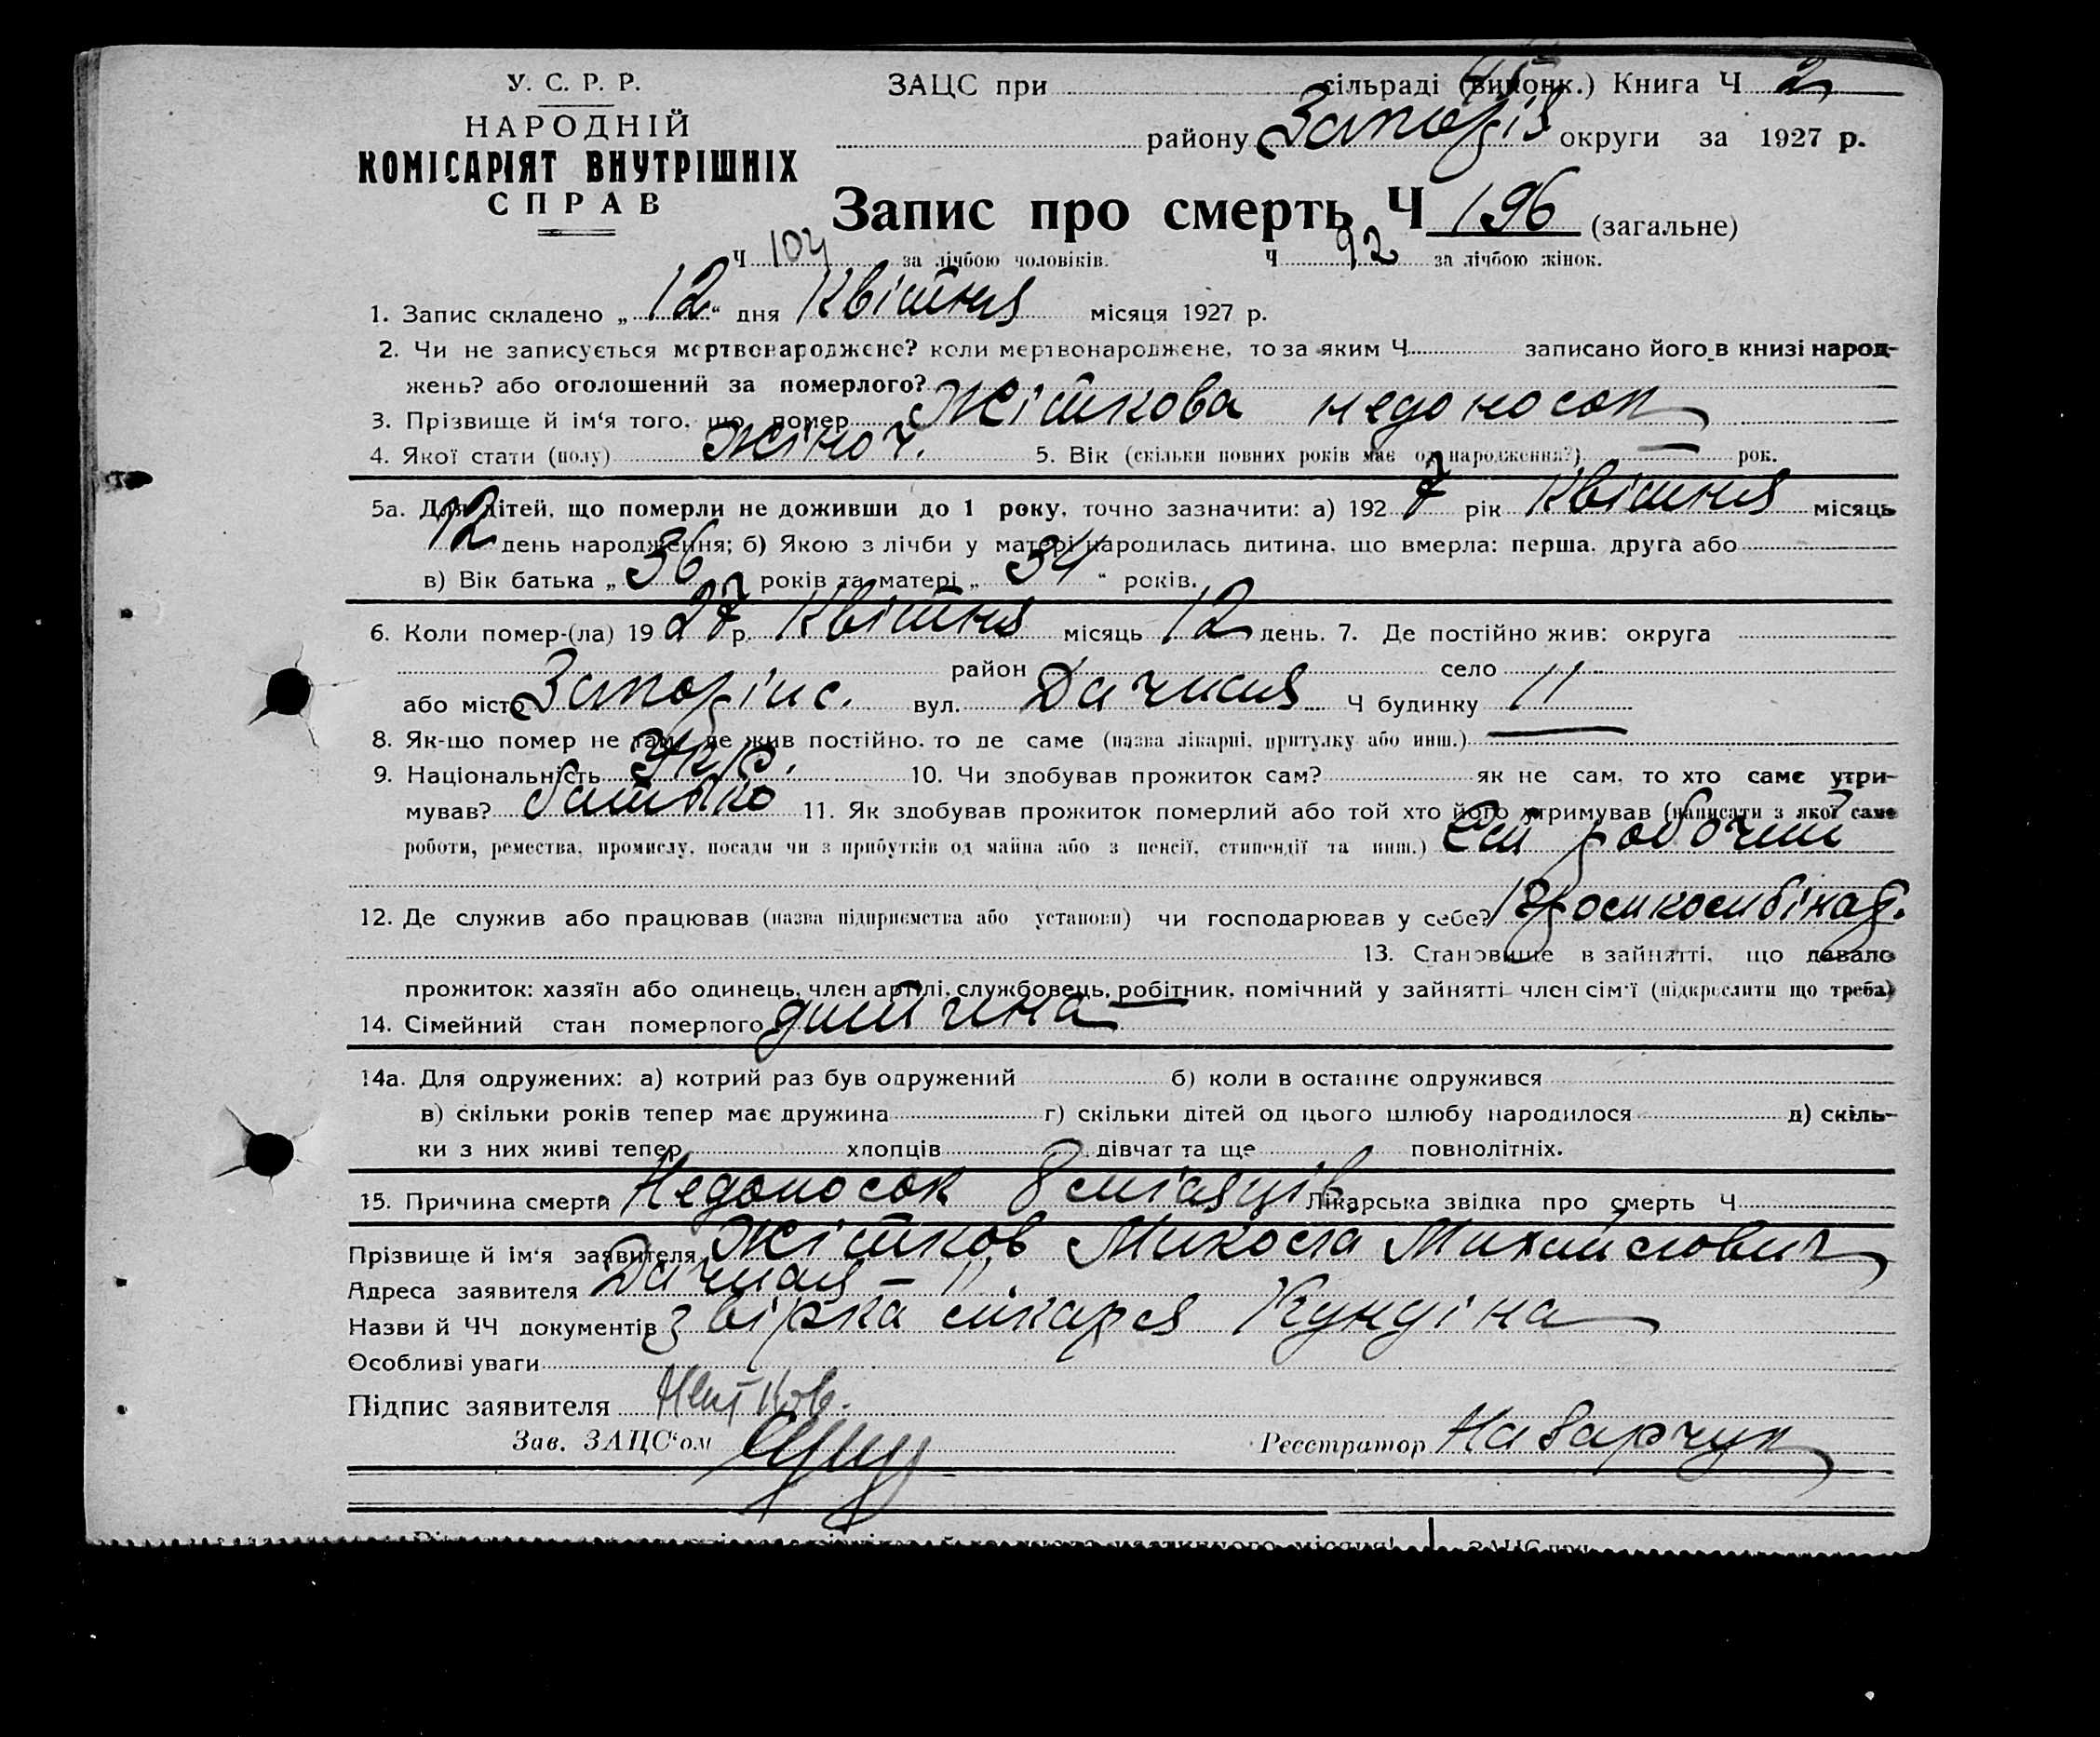 У. С. Р. Р.
НАРОДНІЙ
КОМІСАРІЯТ ВНУТРІШНІХ
СПРАВ
ЗАЦС при сільраді (виконк.) Книга Ч 2
району Запоріз округи за 1927 р.
Запис про смерть Ч 196 (загальне)
Ч 104 за лічбою чоловіків. Ч 92 за лічбою жінок.
1. Запис складено „ 12 “ дня Квітня місяця 1927 р.
2. Чи не записується мертвонароджене? коли мертвонароджене, то за яким Ч записано його в книзі народ-
жень? або оголошений за померлого?
3. Прізвище й ім‘я того, що помер Жіткова недоносок
4. Якої стати (полу) жіноч. 5. Вік (скільки повних років має од народження?) — рок.
5а. Для дітей, що померли не доживши до 1 року, точно зазначити: а) 192 7 рік Квітня місяць
12 день народження; б) Якою з лічби у матері народилась дитина, що вмерла: перша, друга або
в) Вік батька „ 36 років та матері „ 34 “ років.
6. Коли помер-(ла) 19 27 р. Квітня місяць 12 день. 7. Де постійно жив: округа
район село
або місто Запоріж. вул. Дачная Ч будинку 11
8. Як-що помер не там, де жив постійно, то де саме (назва лікарні, притулку або инш.) —
9. Національність Укр. 10. Чи здобував прожиток сам? як не сам, то хто саме утри-
мував? батько 11. Як здобував прожиток померлий або той хто його утримував (написати з якої саме
роботи, ремества, промислу, посади чи з прибутків од майна або з пенсії, стипендії та инш.) робочий
12. Де служив або працював (назва підприємства або установи) чи господарював у себе?
13. Становище в зайнятті, що давало
прожиток: хазяїн або одинець, член артілі, службовець, робітник, помічний у зайнятті член сім‘ї (підкреслити що треба)
14. Сімейний стан померлого дитина
14а. Для одружених: а) котрий раз був одружений б) коли в останнє одружився
в) скільки років тепер має дружина г) скільки дітей од цього шлюбу народилося д) скіль-
ки з них живі тепер хлопців дівчат та ще повнолітніх.
15. Причина смерти Недоносок 8 місяців Лікарська звідка про смерть Ч
Прізвище й ім‘я заявителя Жітков Микола Михайлович
Адреса заявителя Дачная — 11
Назви й ЧЧ документів звірка лікаря Кундіна
Особливі уваги
Підпис заявителя Житков.
Зав. ЗАЦС‘ом Реєстратор Назарчук